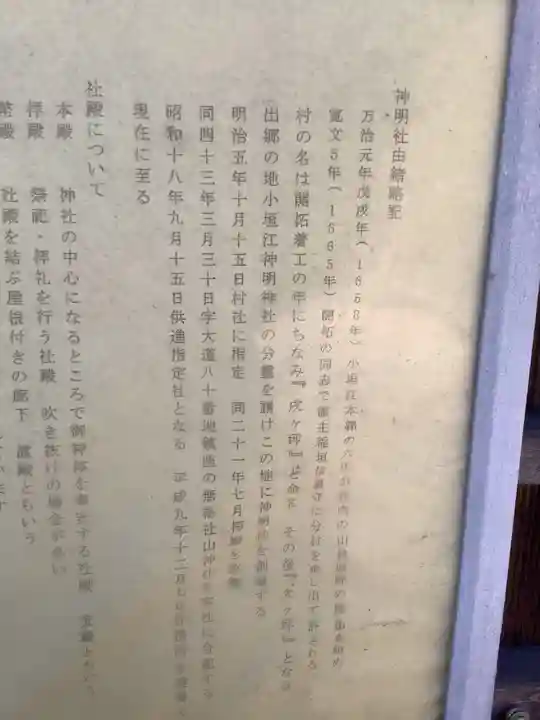 神明社由緒略記
万治元年戊戌年(1658年) 小垣江本郷の
寛文5年(1665年) 開拓の同志で領主稲垣信濃守に分村を申し出て許される
村の名は開拓着工の年にちなみ『戌ヶ坪』と命名 その後『犬ヶ坪』となる
出郷の地小垣江神明神社の分霊を頂けこの地に神明社を創建する
明治五年十月十五日村社に指定 同二十一年七月拝殿を
同四十三年三月三十日字大道八十番地鎮座の無格社山神社を本社に合祀する
昭和十八年九月十五日供進指定社となる 平成九年十二月
現在に至る
社殿について
本殿 神社の中心になるところで御神体を奉安する社殿
拝殿 祭祀・拝礼を行う社殿 吹き抜けの場合が多い
幣殿 社殿を結ぶ屋根付きの廊下 渡殿ともいう